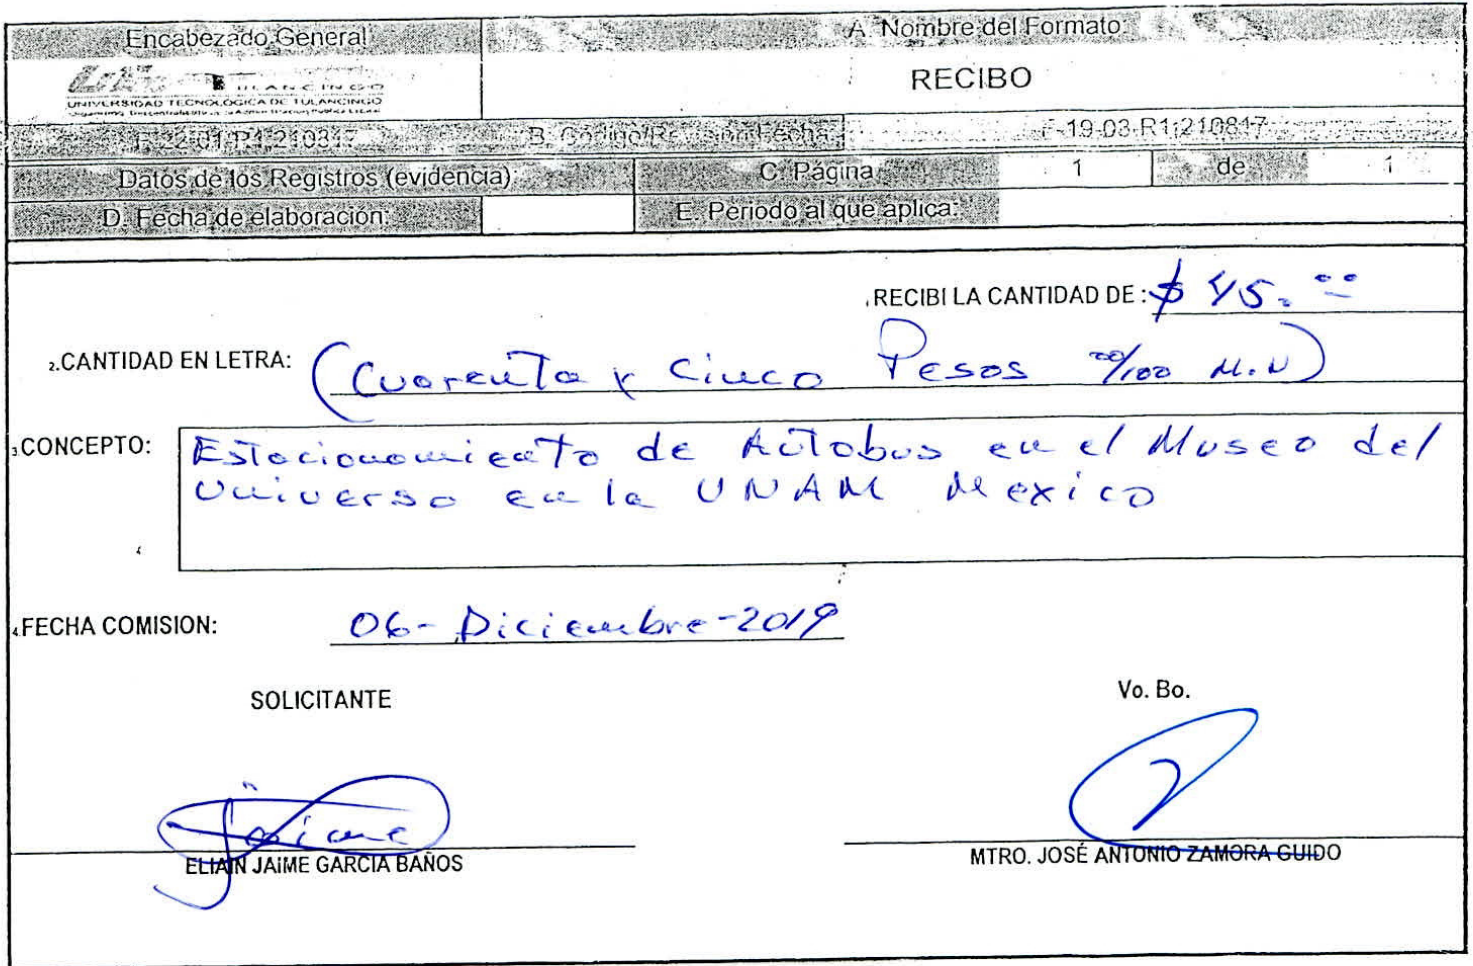 Encabezado General
A. Nombre del Formato:
TULANCINGO
UNIVERSIDAD TECNOLÓGICA DE TULANCINGO
RECIBO
F-22-01-R1;210817
B. Código/Revisión-Fecha:
F-19-03-R1;210817
Datos de los Registros (evidencia)
C. Página
1
de
1
D. Fecha de elaboración:
E. Periodo al que aplica:
1.RECIBI LA CANTIDAD DE: $ 45.00
2.CANTIDAD EN LETRA: (Cuarenta y Cinco Pesos 00/100 M.N)
3.CONCEPTO: Estacionamiento de Autobus en el Museo del
Universo en la UNAM Mexico
4.FECHA COMISION: 06-Diciembre-2019
SOLICITANTE
Vo. Bo.
Jaime
ELIAIN JAIME GARCIA BAÑOS
MTRO. JOSÉ ANTONIO ZAMORA GUIDO